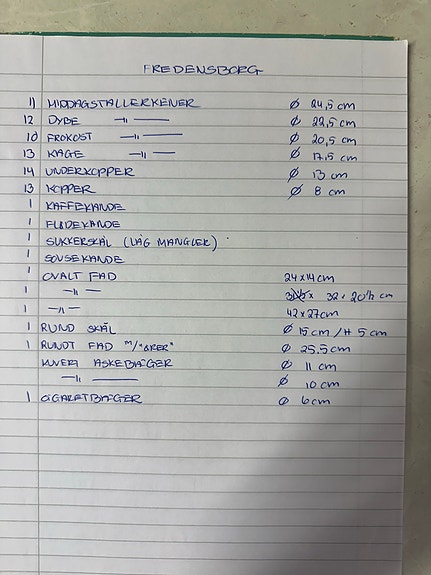 FREDENSBORG
11 MIDDAGSTALLERKENER Ø 24,5 cm
12 DYBE —"— Ø 22,5 cm
10 FROKOST —"— Ø 20,5 cm
13 KAGE —"— Ø 17,5 cm
14 UNDERKOPPER Ø 13 cm
13 KOPPER Ø 8 cm
1 KAFFEKANDE
1 FLØDEKANDE
1 SUKKERSKÅL (LÅG MANGLER)
1 SOVSEKANDE
1 OVALT FAD 24x14cm
1 —"— 32 x 20½ cm
1 —"— 42x27cm
1 RUND SKÅL Ø 15 cm / H 5 cm
1 RUNDT FAD M/"ØRER" Ø 25.5 cm
KUVERT ASKEBÆGER Ø 11 cm
—"— Ø 10 cm
1 CIGARETBÆGER Ø 6 cm